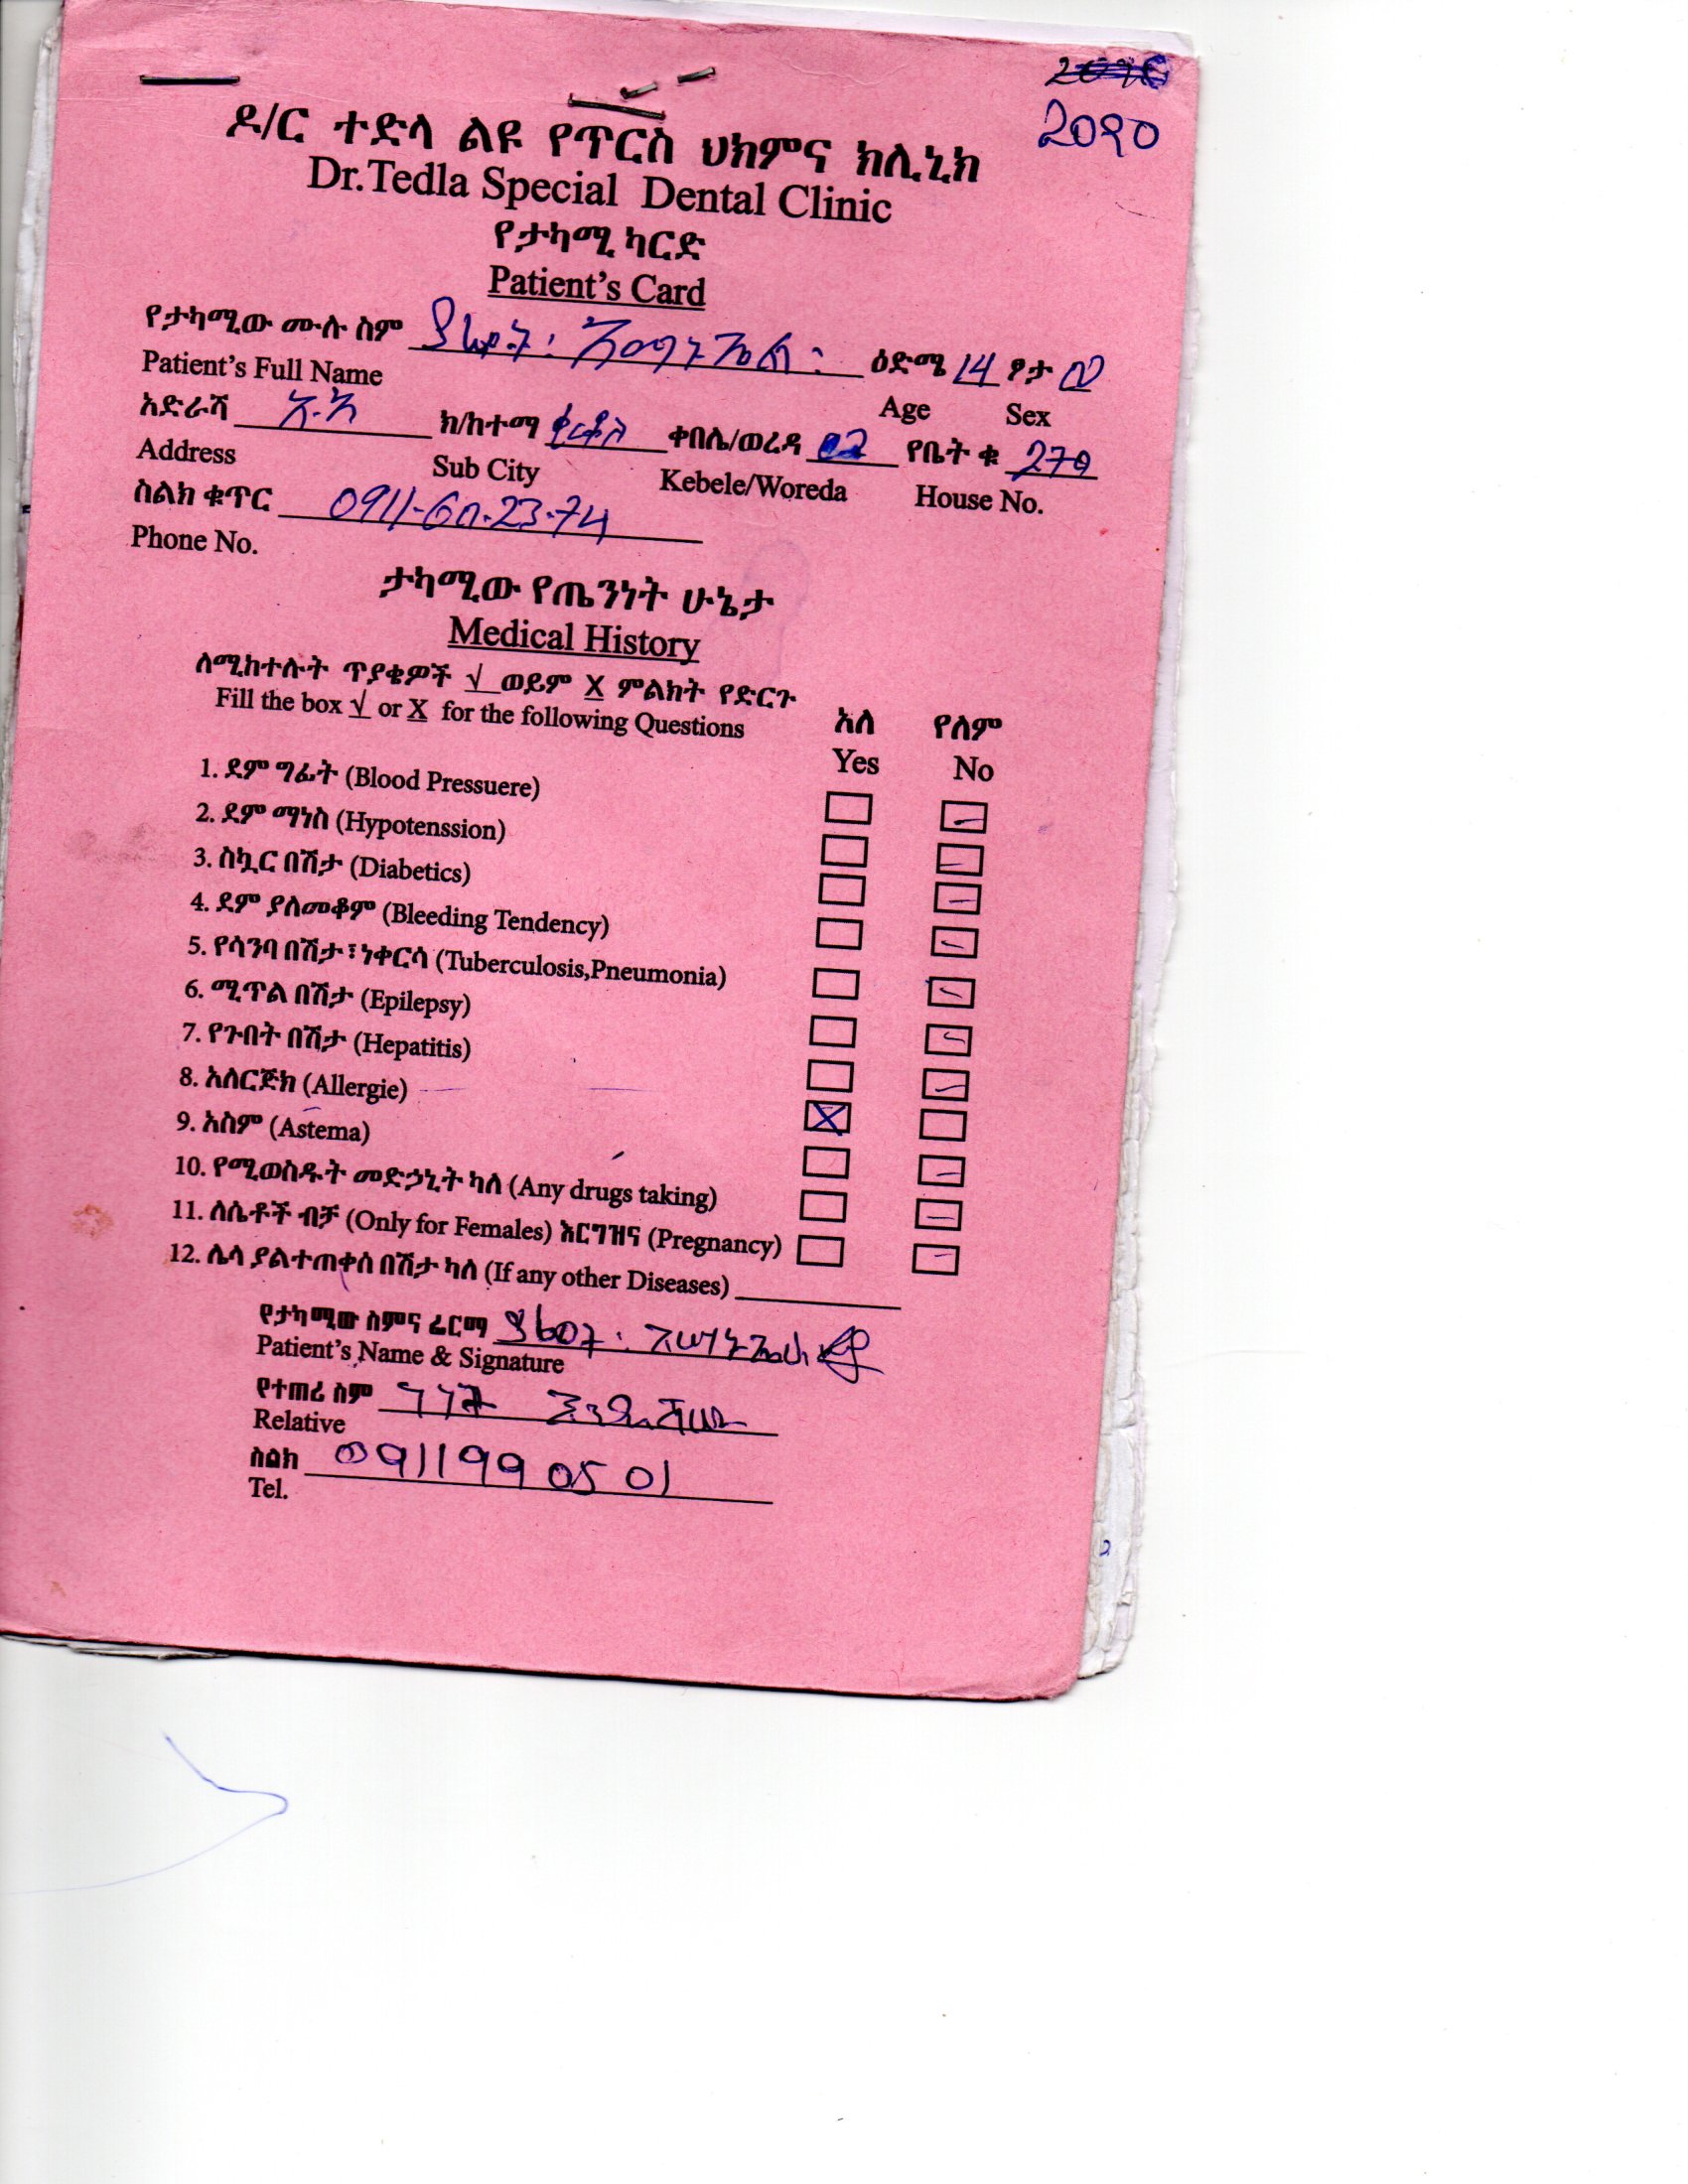 2090
ዶ/ር ተድላ ልዩ የጥርስ ህክምና ክሊኒክ
Dr.Tedla Special Dental Clinic
የታካሚ ካርድ
Patient's Card
የታካሚው ሙሉ ስም ያሬድ አማኑኤል ዕድሜ 14 ፆታ
Patient's Full Name Age Sex
አድራሻ አ.አ ክ/ከተማ ቂርቆስ ቀበሌ/ወረዳ 02 የቤት ቁ 270
Address Sub City Kebele/Woreda House No.
ስልክ ቁጥር 0911-60-23-74
Phone No.
ታካሚው የጤንነት ሁኔታ
Medical History
ለሚከተሉት ጥያቄዎች √ ወይም X ምልክት የድርጉ
Fill the box √ or X for the following Questions
አለ የለም
Yes No
1. ደም ግፊት (Blood Pressuere)
2. ደም ማነስ (Hypotenssion)
3. ስኳር በሽታ (Diabetics)
4. ደም ያለመቆም (Bleeding Tendency)
5. የሳንባ በሽታ፣ ነቀርሳ (Tuberculosis,Pneumonia)
6. ሚጥል በሽታ (Epilepsy)
7. የጉበት በሽታ (Hepatitis)
8. አለርጅክ (Allergie)
9. አስም (Astema)
10. የሚወስዱት መድኃኒት ካለ (Any drugs taking)
11. ለሴቶች ብቻ (Only for Females) እርግዝና (Pregnancy)
12. ሌላ ያልተጠቀሰ በሽታ ካለ (If any other Diseases)
የታካሚው ስምና ፊርማ
Patient's Name & Signature
የተጠሪ ስም
Relative
ስልክ 0911990501
Tel.